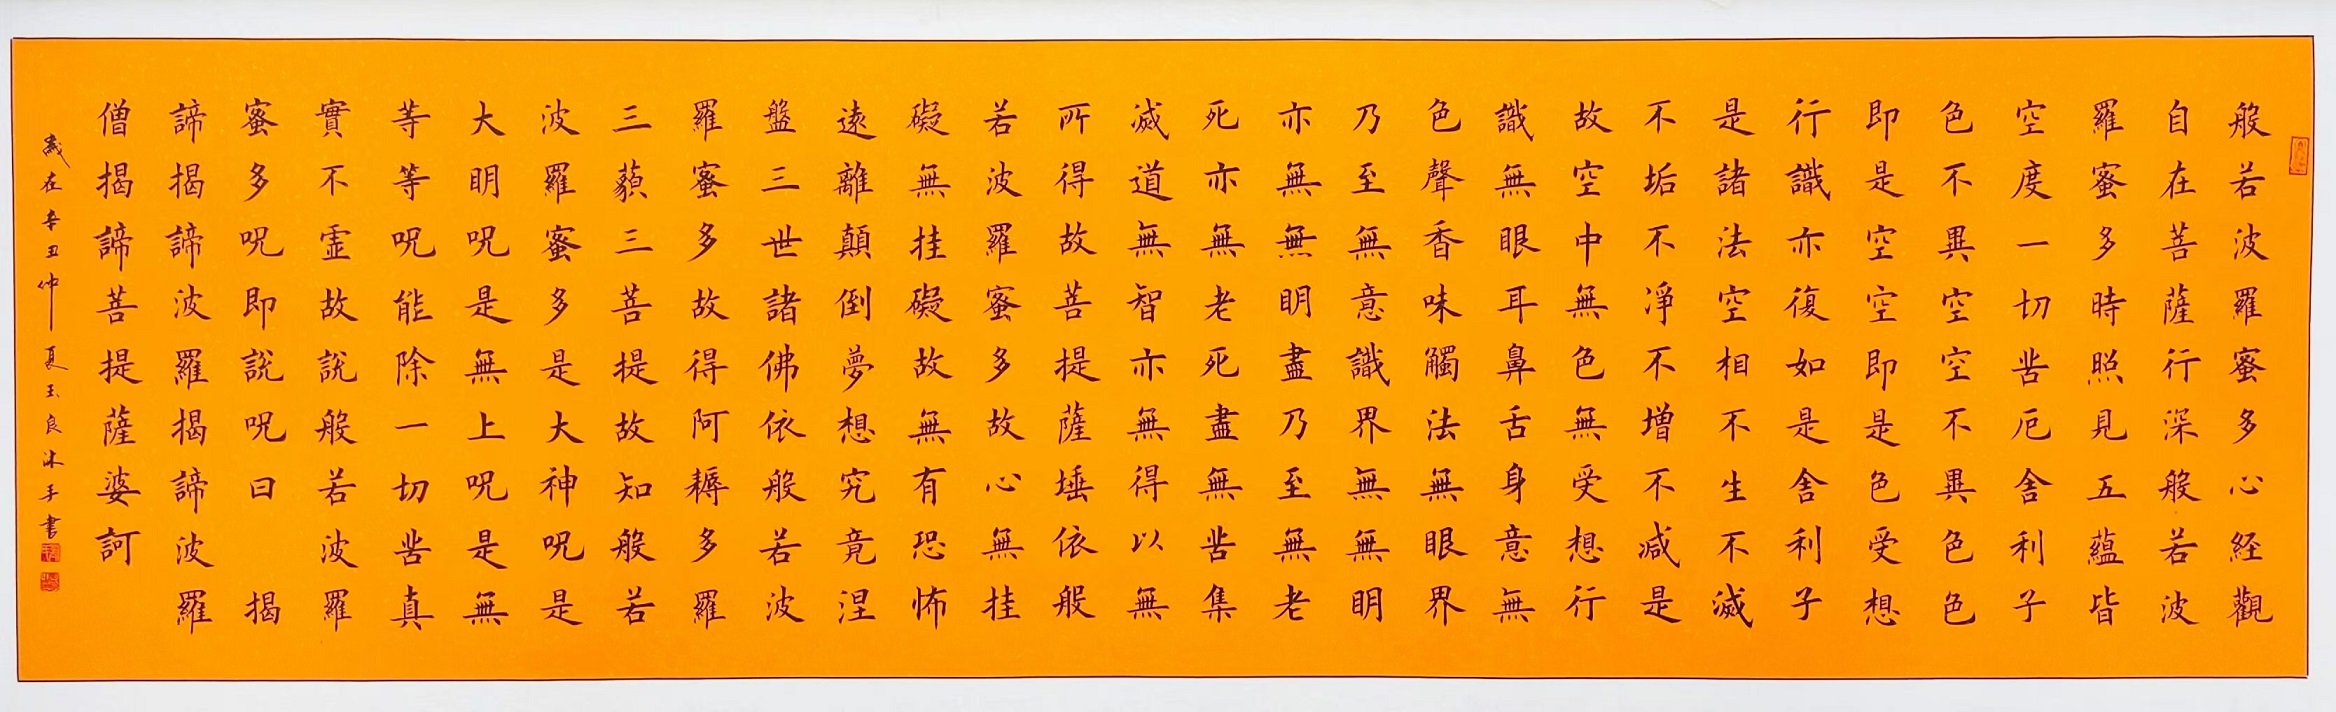 般若波羅蜜多心経觀
自在菩薩行深般若波
羅蜜多時照見五蘊皆
空度一切苦厄舍利子
色不異空空不異色色
即是空空即是色受想
行識亦復如是舍利子
是諸法空相不生不滅
不垢不淨不增不減是
故空中無色無受想行
識無眼耳鼻舌身意無
色聲香味觸法無眼界
乃至無意識界無無明
亦無無明盡乃至無老
死亦無老死盡無苦集
滅道無智亦無得以無
所得故菩提薩埵依般
若波羅蜜多故心無挂
礙無挂礙故無有恐怖
遠離顛倒夢想究竟涅
盤三世諸佛依般若波
羅蜜多故得阿耨多羅
三藐三菩提故知般若
波羅蜜多是大神呪是
大明呪是無上呪是無
等等呪能除一切苦真
實不虛故說般若波羅
蜜多呪即說呪曰 揭
諦揭諦波羅揭諦波羅
僧揭諦菩提薩婆訶
歲在辛丑仲夏玉良沐手書